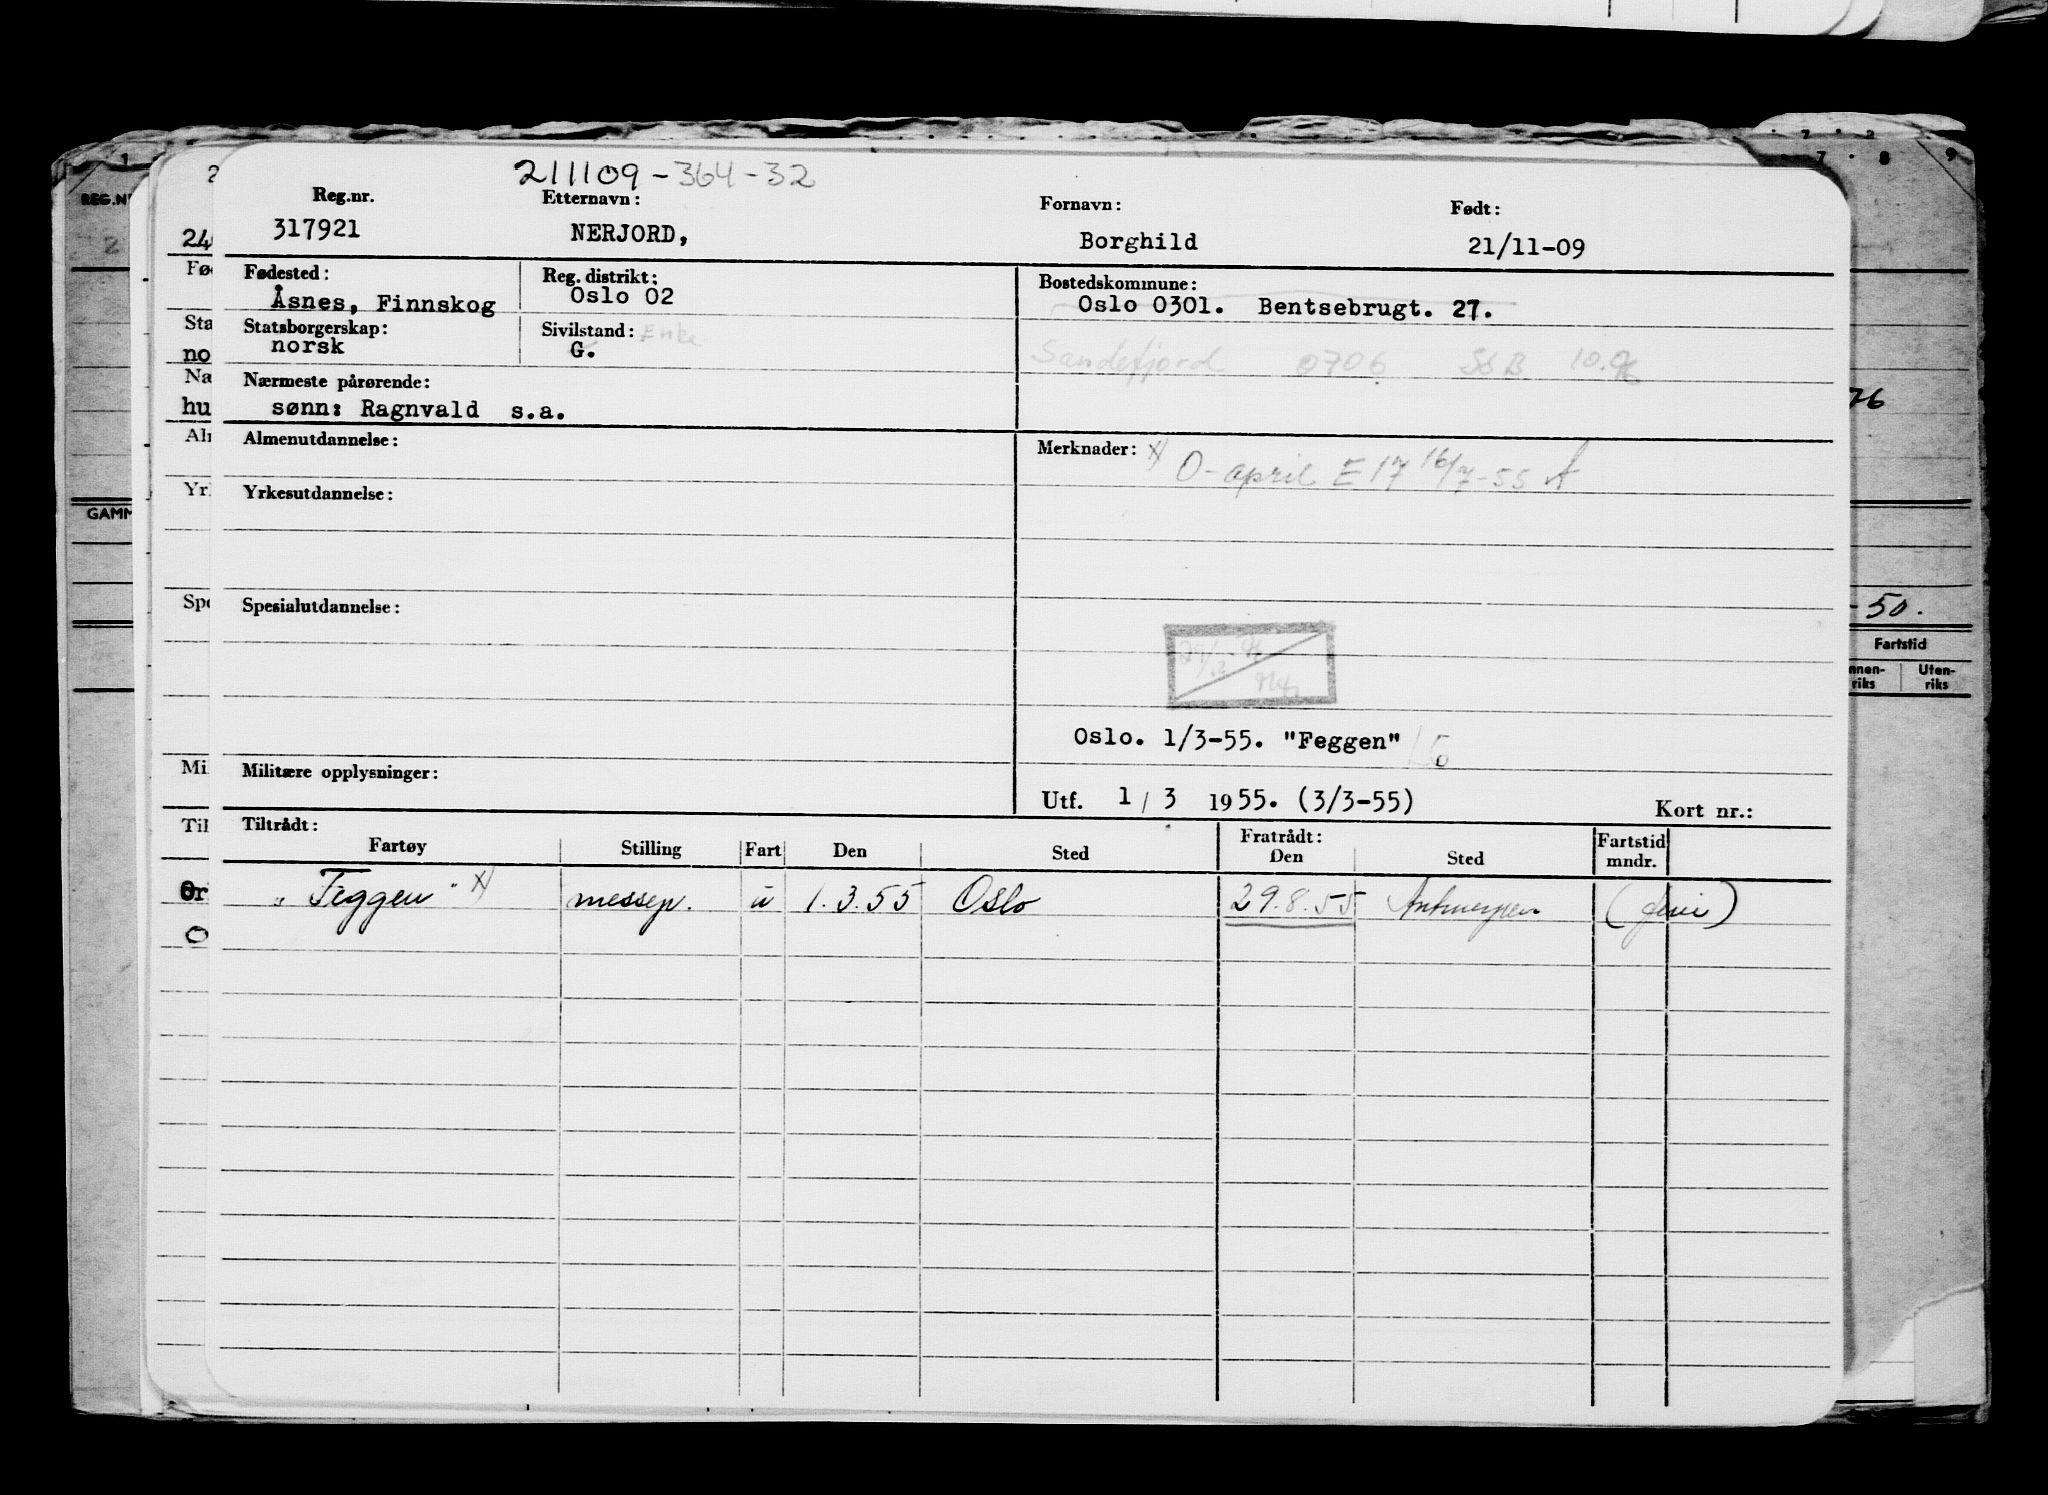 211109-364-32
Reg.nr. Etternavn: Fornavn: Født:
317921 NERJORD, Borghild 21/11-09
Fødested: Reg. distrikt: Bostedskommune:
Åsnes, Finnskog Oslo 02 Oslo 0301. Bentsebrugt. 27.
Statsborgerskap: Sivilstand: Enke
norsk G. Sandefjord 0706 SSB
Nærmeste pårørende:
sønn: Ragnvald s.a.
Almenutdannelse: Merknader: x) O-april E17 16/7-55 A
Yrkesutdannelse:
Spesialutdannelse:
Oslo. 1/3-55. "Feggen"
Militære opplysninger:
Utf. 1/3 1955. (3/3-55) Kort nr.:
Tiltrådt: Fratrådt: Fartstid
Fartøy Stilling Fart Den Sted Den Sted mndr.
"Feggen" x) messep. u 1.3.55 Oslo 29.8.55 Antwerpen
REG.N
GAMM
76
-50.
Fartstid
nnen-riks Uten-riks